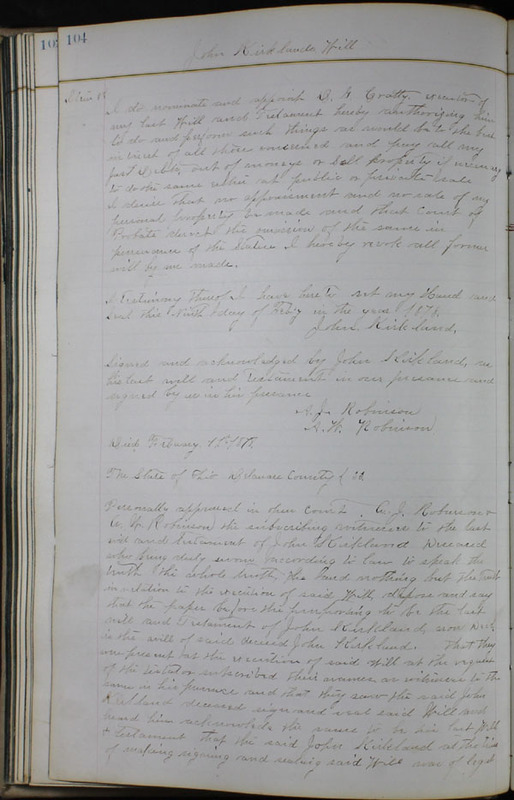 10 104
John Kirklands Will
Item 8th I do nominate and appoint D. H. Gratty, executor of
my last Will and Testament hereby authorizing him
to do and perform such things as would be to the best
interest of all those concerned and pay all my
just Debts out of moneys or sell property if necessary
to do the same either at public or private sale
I desire that no appraisment and no sale of my
personal property be made and that Court of
Probate direct the omission of the same in
pursuance of the Statue I hereby revok all former
will by me made.
In Testimony thereof I have hereto set my Hand and
Seal this Ninth day of Feby in the year 1878.
John Kirkland,
Signed and acknowledged by John Kirkland, as
his last will and Testament in our presence and
signed by us in his presence
A. J. Robinson
A. W. Robinson
Died Febuary 1878.
The State of Ohio Delaware County } ss
Personally appeared in open Court A. J. Robinson &
W. Robinson the subscribing witnesses to the last
will and testament of John Kirkland Deceased
who being duly sworn according to law to speak the
truth the whole truth, and nothing but the truth
in relation to the execution of said Will, depose and say
that the paper before them purporting to be the last
will and Testament of John Kirkland, now Decd.
is the will of said deceased John Kirkland. That they
were present at the execution of said Will at the request
of the testator subscribed their names as witnesses to the
same in his presence and that they saw the said John
Kirkland deceased sign and seal said Will and
heard him acknowledge the same to be his last Will
& testament that the said John Kirkland at the time
of making signing and sealing said Will was of legal